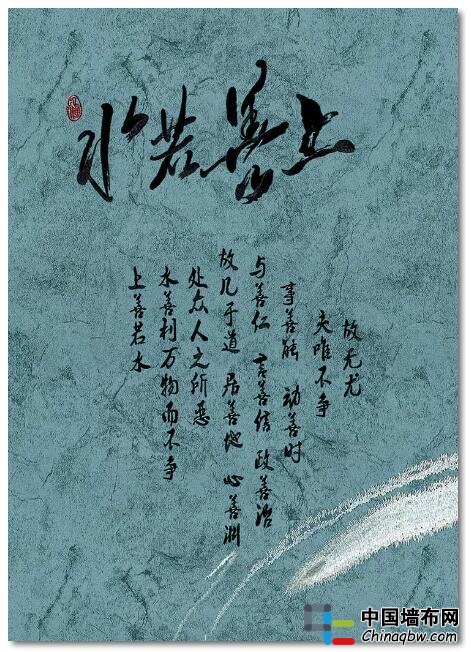 上善若水
上善若水
水善利万物而不争
处众人之所恶
故几于道 居善地 心善渊
与善仁 言善信 政善治
事善能 动善时
夫唯不争
故无尤
中国墙布网
Chinaqbw.com